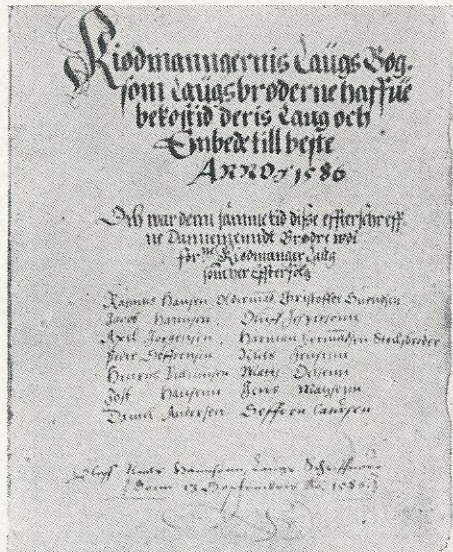 Kiødmanngernis Laugs Bog.
som Laugsbrøderne haffue
bekostid deris Laug och
Embede till beste
ANNO 1586
Och war denn samme tid disse effterschreff
ne Dannemendt Brødre wdi
for^ne Kiødmanger Laug
som her Efterfølg
Rasmus Hansen Olderman Christoffer Suendsen
Jacob Hannsen. Oluff Jespersenn
Axel Jørgensen. Harman Hermandsen
Peder Seffrensen Niels Jensenn
Hinrich Hannsen Matz Olsenn
Jost Hansenn Jens Matzsenn
Daniel Andersen Seffren Laurssen
Hannsenn Laugs
Denn 13 Septembris Ao. 1586